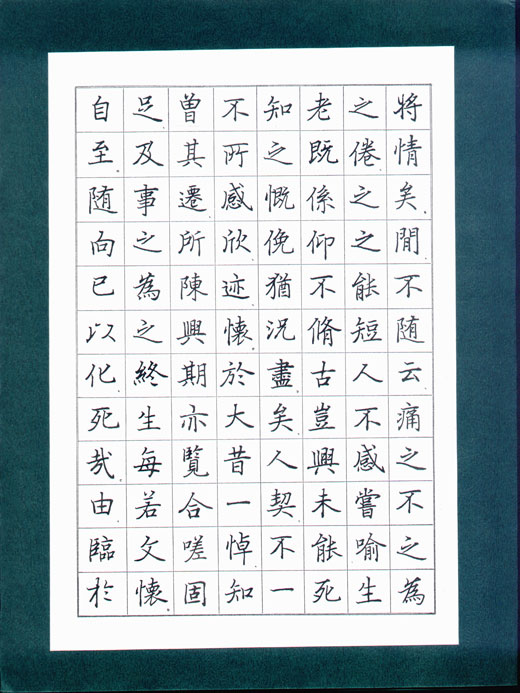 自足曽不知老之将
至及其所之既倦情
随事遷感慨係之矣
向之所欣俛仰之閒
已為陳迹猶不能不
以之興懷況脩短随
化終期於盡古人云
死生亦大矣豈不痛
哉每覽昔人興感之
由若合一契未嘗不
臨文嗟悼不能喻之
於懷固知一死生為